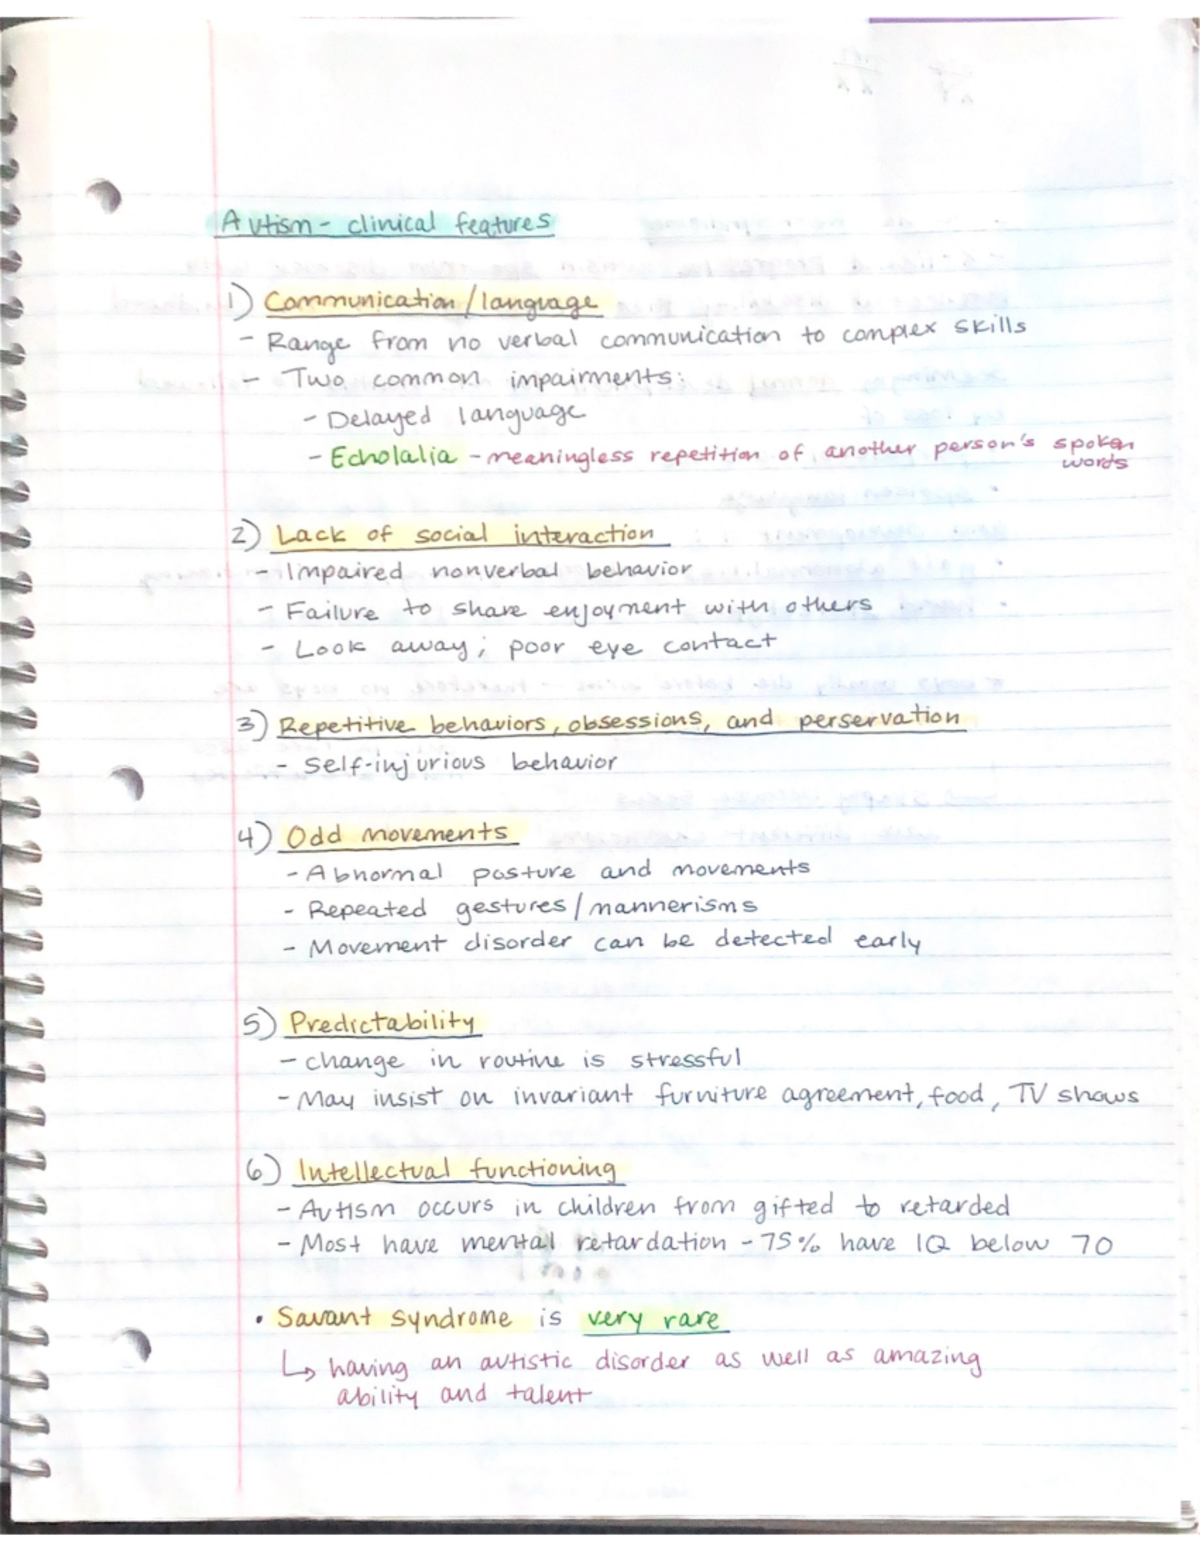 Autism - clinical features
1) Communication/language
- Range from no verbal communication to complex skills
- Two common impairments:
- Delayed language
- Echolalia - meaningless repetition of another person's spoken
words
2) Lack of social interaction
- Impaired nonverbal behavior
- Failure to share enjoyment with others
- Look away; poor eye contact
3) Repetitive behaviors, obsessions, and perservation
- Self-injurious behavior
4) Odd movements
- Abnormal posture and movements
- Repeated gestures/mannerisms
- Movement disorder can be detected early
5) Predictability
- change in routine is stressful
- May insist on invariant furniture agreement, food, TV shows
6) Intellectual functioning
- Autism occurs in children from gifted to retarded
- Most have mental retardation - 75% have IQ below 70
• Savant syndrome is very rare
↳ having an autistic disorder as well as amazing
ability and talent